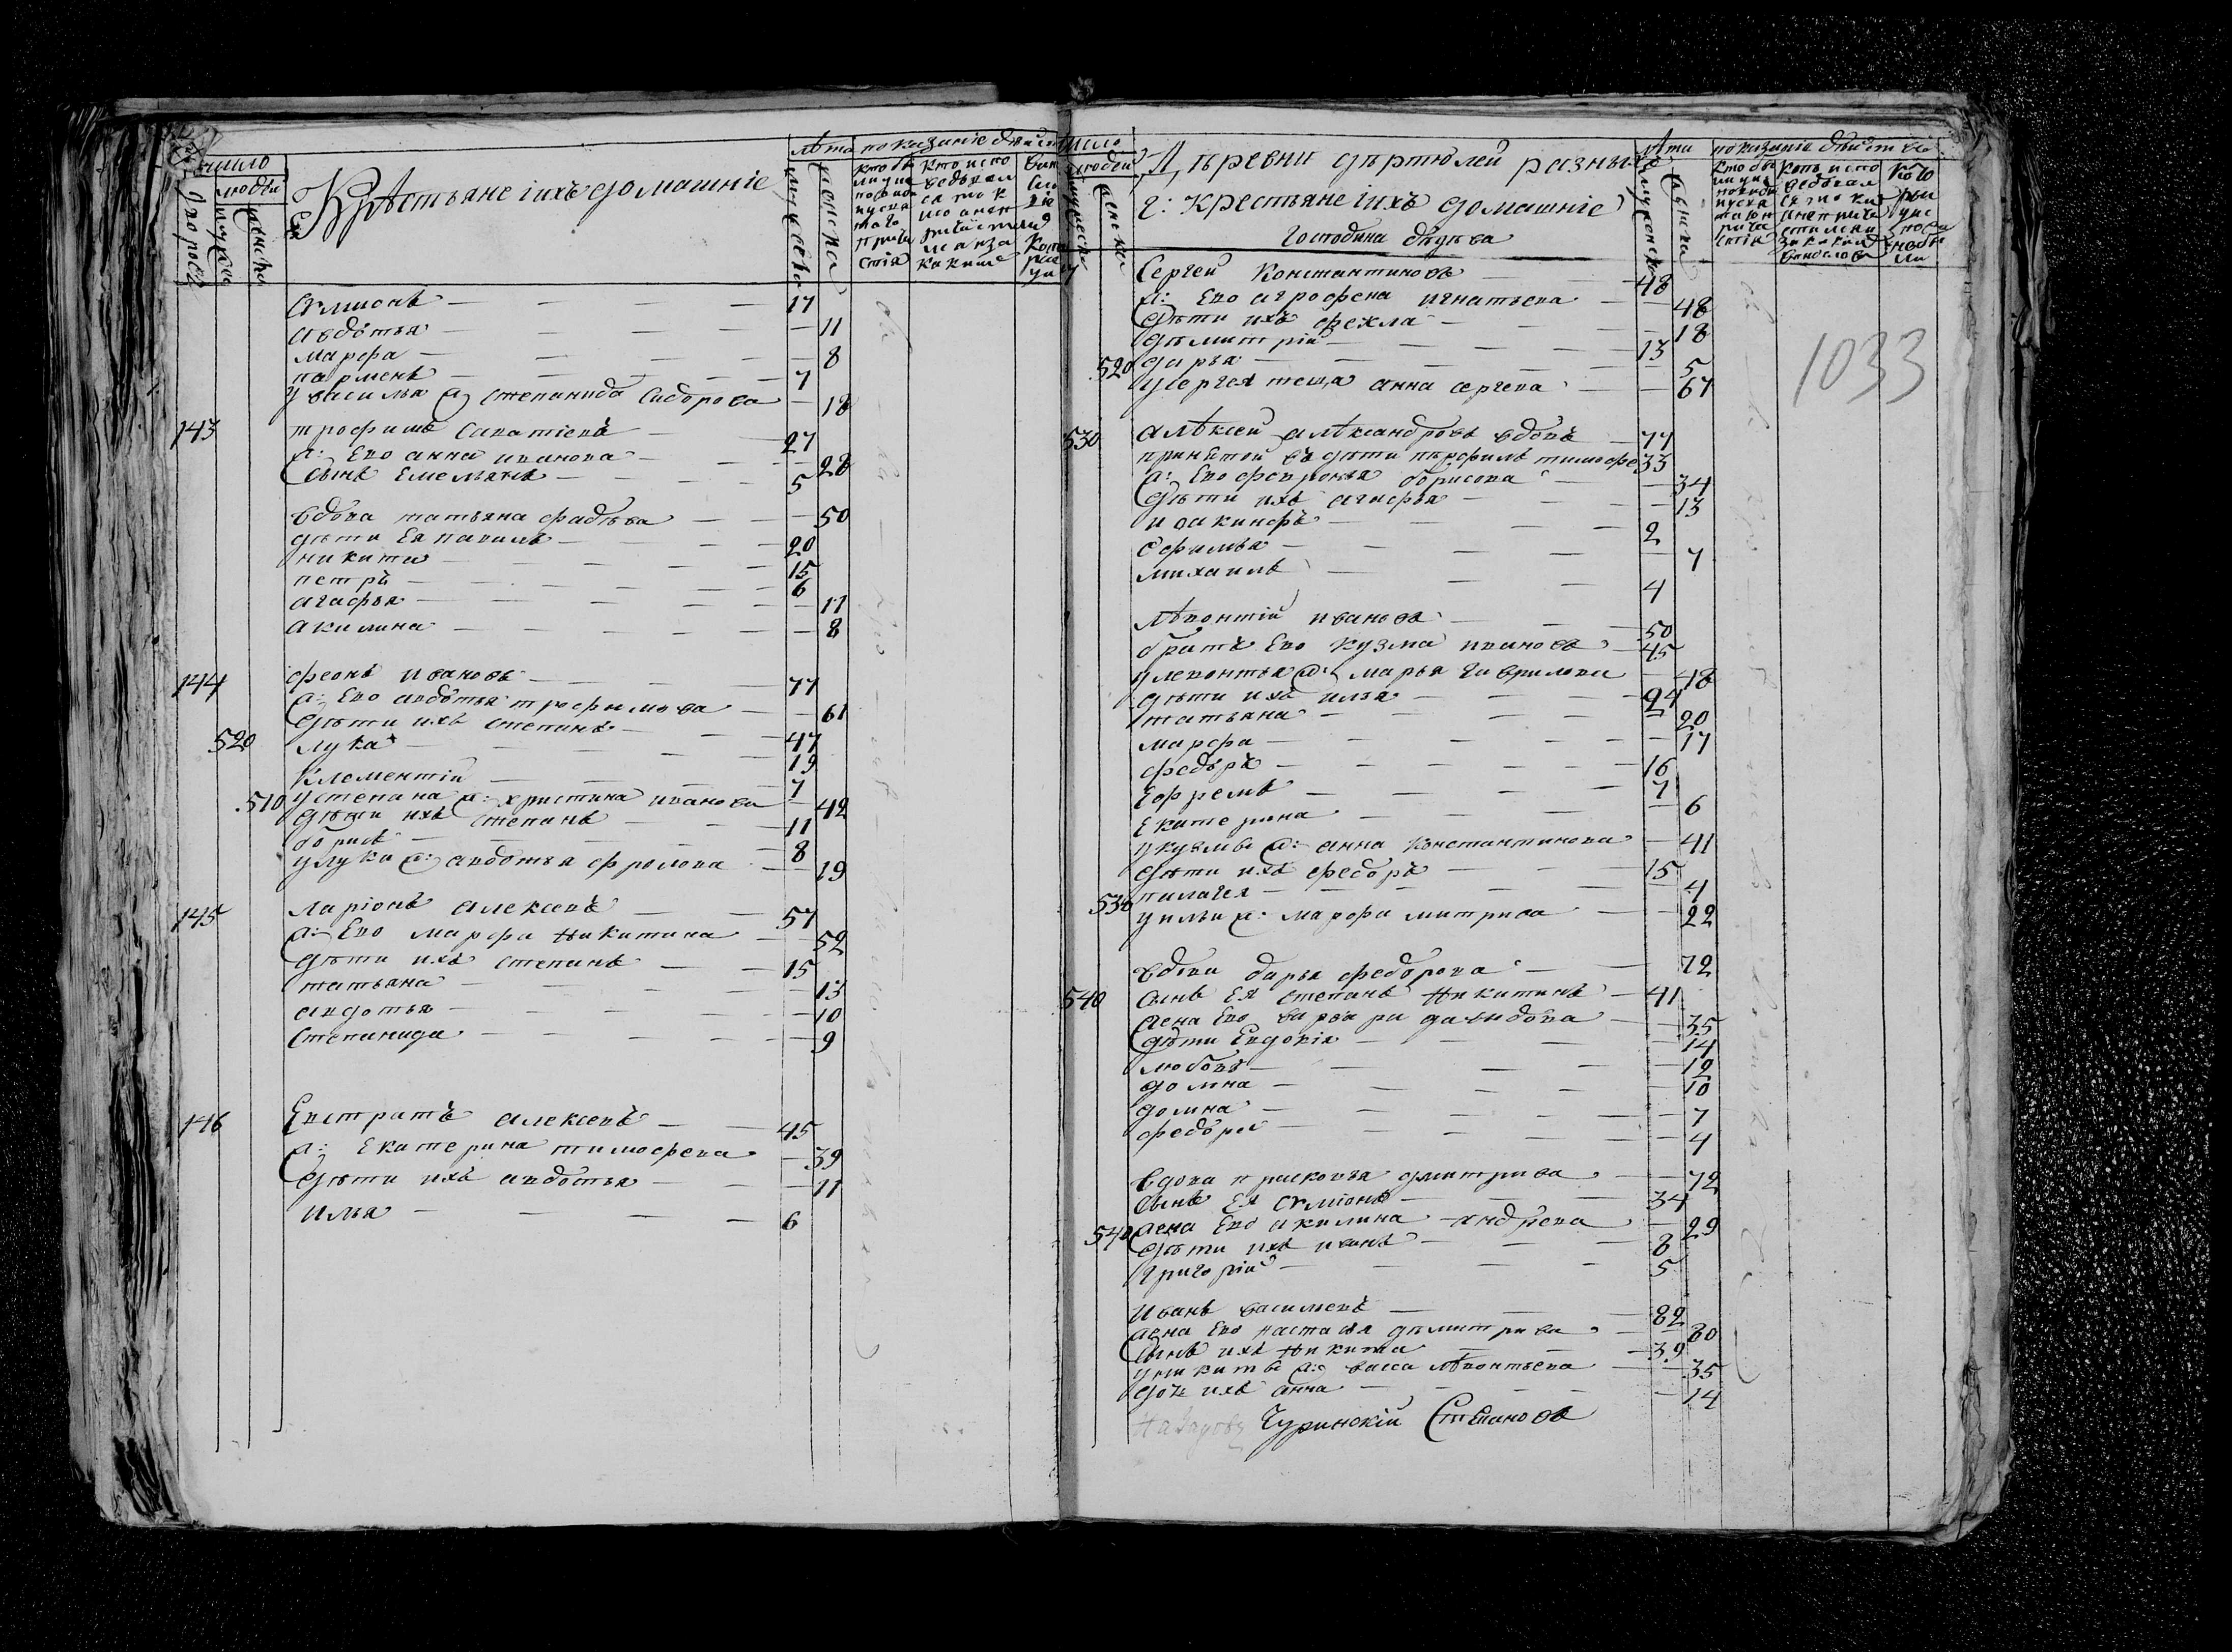 число
людей
дворовъ
мужска
женска
Крѣстьяне iихъ домашнiе
лѣта
мужеска
женска
показанiе дѣйст
Симионъ 17
Авдотья 11
марфа 8
парменъ 7
у василья ж: степанида Сидорова 18
143 трофимъ Саватiевъ 27
ж: Ево анна иванова 28
Сынъ Емельянъ 5
вдова татьяна фадѣева 50
дѣти Ея павилъ 20
никита 15
петръ 6
агафья 11
акилина 8
144 феонъ ивановъ 77
ж: Ево авдотья трофимова 61
дѣти ихъ степанъ 47
520 лука 19
Клементiй 7
510 у степана ж: христина иванова 42
дѣти ихъ степанъ 11
борисъ 8
у луки ж: авдотья фролова 19
145 ларiонъ алексевъ 57
ж: Ево марфа никитина 52
дѣти ихъ степанъ 15
татьяна 13
авдотья 10
Степанида 9
146 Евстратъ алексевъ 45
ж: Екатерина тимофеева 39
дѣти ихъ авдотья 11
илья 6
число
людей
мужеска
женска
Дѣревни дѣртюлей разныхъ
г: крестьяне iихъ домашнiе
Господина
лѣта
женска
показанiе дѣйствiе
1033
Сергей Константиновъ 48
ж: Ево агрофена игнатьева 48
дѣти ихъ фекла 18
дѣмитрiй 13
520 дарья 5
у сергея теща анна сергева 67
530 алѣксей алѣксандровъ вдовъ 77
принятой въ дѣти пѣрфилъ тимофе 33
ж: Ево февронья борисова 34
дѣти ихъ агафья 13
иоакинфъ 2
Ефимья 7
михаилъ 4
лѣвонтiй ивановъ 50
братъ Ево кузма ивановъ 45
у левонтья ж: марья гаврилова 48
дѣти ихъ илья 24
татьяна 20
марфа 17
федоръ 16
Ефремъ 7
Екатерина 6
у кузмы ж: анна константинова 41
дѣти ихъ федоръ 15
530 пилагея 4
у ильи ж: марфа митрива 22
вдова дарья федорова 72
540 сынъ Ея степанъ никитинъ 41
жена Ево варвара давидова 35
дѣти Евдокiя 14
любовь 12
домна 10
домна 7
федора 4
вдова прасковья дмитрива 72
сынъ Ея симiонъ 34
540 жена Ево акилина андреева 29
дѣти ихъ иванъ 8
григорiй 5
иванъ васильевъ 82
жена Ево настасья дѣмитрива 80
сынъ ихъ никита 39
у никиты ж: васса лѣвонтьева 35
дочь ихъ анна 14
Чуринскiй Степановъ